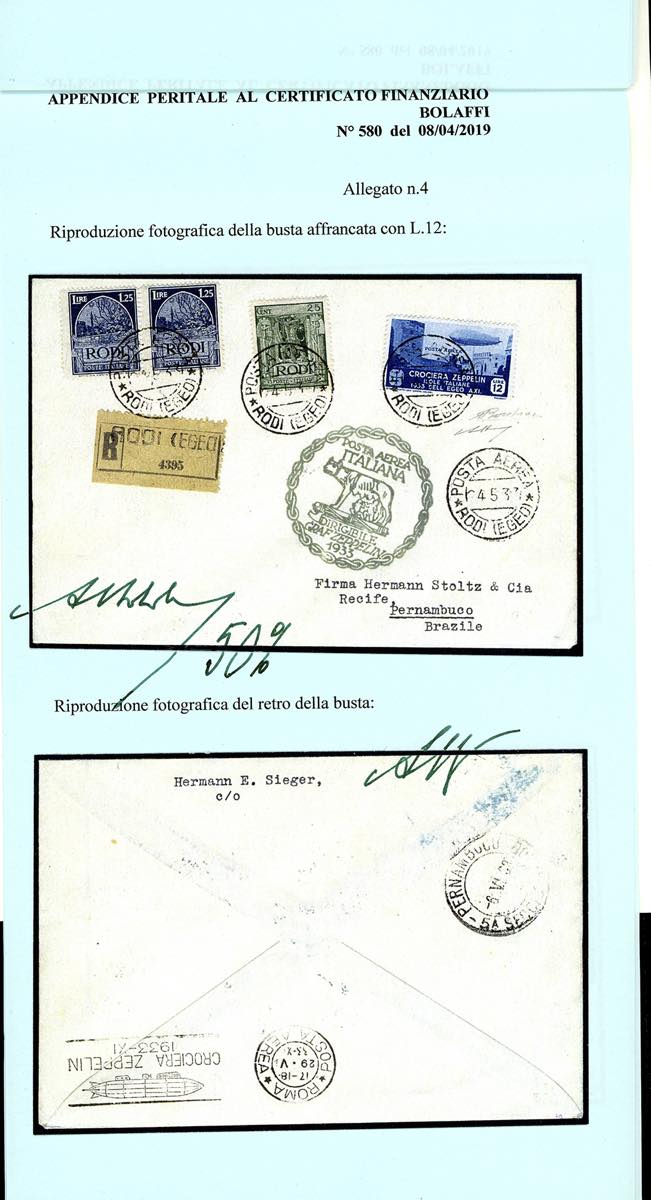 APPENDICE PERITALE AL CERTIFICATO FINANZIARIO
BOLAFFI
N° 580 del 08/04/2019
Allegato n.4
Riproduzione fotografica della busta affrancata con L.12:
LIRE 1.25
LIRE 1.25
CENT 25
RODI
RODI
RODI
POSTE ITALIANE
POSTE ITALIANE
POSTE ITALIANE
POSTA AEREA
CROCIERA ZEPPELIN
ISOLE ITALIANE
1933 DELL'EGEO A.XI.
LIRE 12
RODI (EGEO)
POSTA
RODI (EGEO)
RODI (EGEO)
R RODI (EGEO)
4395
POSTA AEREA
ITALIANA
DIRIGIBILE
GRAF ZEPPELIN
1933
POSTA AEREA
RODI (EGEO)
Firma Hermann Stoltz & Cia
Recife,
Pernambuco
Brazile
50%
Riproduzione fotografica del retro della busta:
Hermann E. Sieger,
c/o
PERNAMBUCO
5A SEC
CROCIERA ZEPPELIN
1933-XI
ROMA
POSTA AEREA
17-18
29·V
33-XI